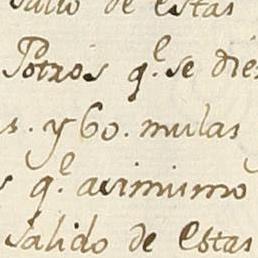 salio de estas
Potros q.e se die
s. y 60. mulas
s q.e asimismo
salido de estas